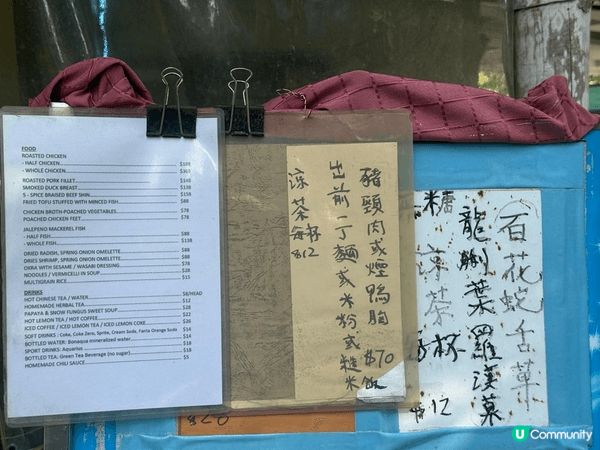 FOOD
ROASTED CHICKEN
- HALF CHICKEN
- WHOLE CHICKEN
ROASTED PORK FILLET $148
SMOKED DUCK BREAST $138
5 - SPICE BRAISED BEEF SHIN $158
FRIED TOFU STUFFED WITH MINCED FISH $88
CHICKEN BROTH-POACHED VEGETABLES $78
POACHED CHICKEN FEET $78
JALEPENO MACKEREL FISH
- HALF FISH $88
- WHOLE FISH $138
DRIED RADISH, SPRING ONION OMELETTE $88
DRIES SHRIMP, SPRING ONION OMELETTE $88
OKRA WITH SESAME / WASABI DRESSING $78
NOODLES / VERMICELLI IN SOUP $28
MULTIGRAIN RICE $15
DRINKS
HOT CHINESE TEA / WATER $8/HEAD
HOMEMADE HERBAL TEA $12
PAPAYA & SNOW FUNGUS SWEET SOUP $28
HOT LEMON TEA / HOT COFFEE $22
ICED COFFEE / ICED LEMON TEA / ICED LEMON COKE $26
SOFT DRINKS : Coke, Coke Zero, Sprite, Cream Soda, Fanta Orange Soda $14
BOTTLED WATER: Bonaqua mineralized water $14
SPORT DRINKS: Aquarius $18
BOTTLED TEA: Green Tea Beverage (no sugar) $18
HOMEMADE CHILI SAUCE $5
豬頸肉或煙鴨胸 $70
出前一丁麵或米粉或糙米飯
涼茶每杯$12
百花蛇舌草
龍脷葉羅漢菓
糖
涼茶
杯
$12
U Community